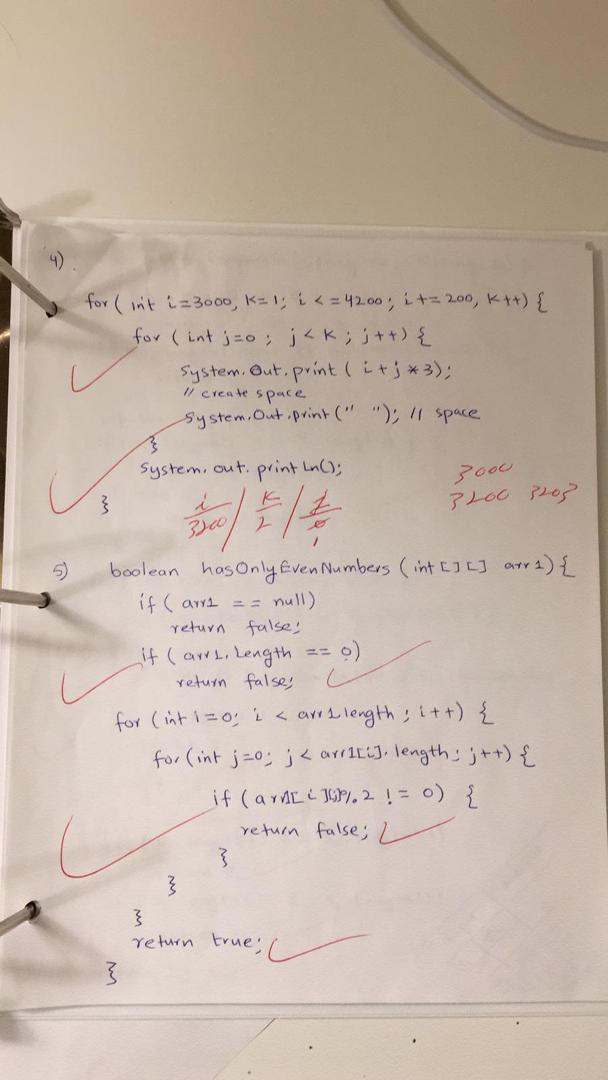 4).
for ( int i=3000, k=1; i <=4200; i+=200, k++) {
for ( int j=0 ; j<k ; j++) {
System.Out.print ( i+j*3);
// create space
System.Out.print(" "); // space
}
System.out.println();
}
3000
3200 3203
i/3200 | k/2 |
5) boolean hasOnlyEvenNumbers (int[][] arr1) {
if ( arr1 == null)
return false;
if ( arr1.length == 0)
return false;
for (int i=0; i < arr1length ; i++) {
for(int j=0; j< arr1[i].length; j++) {
if (arr1[i][j]%2 != 0) {
return false;
}
}
}
return true;
}